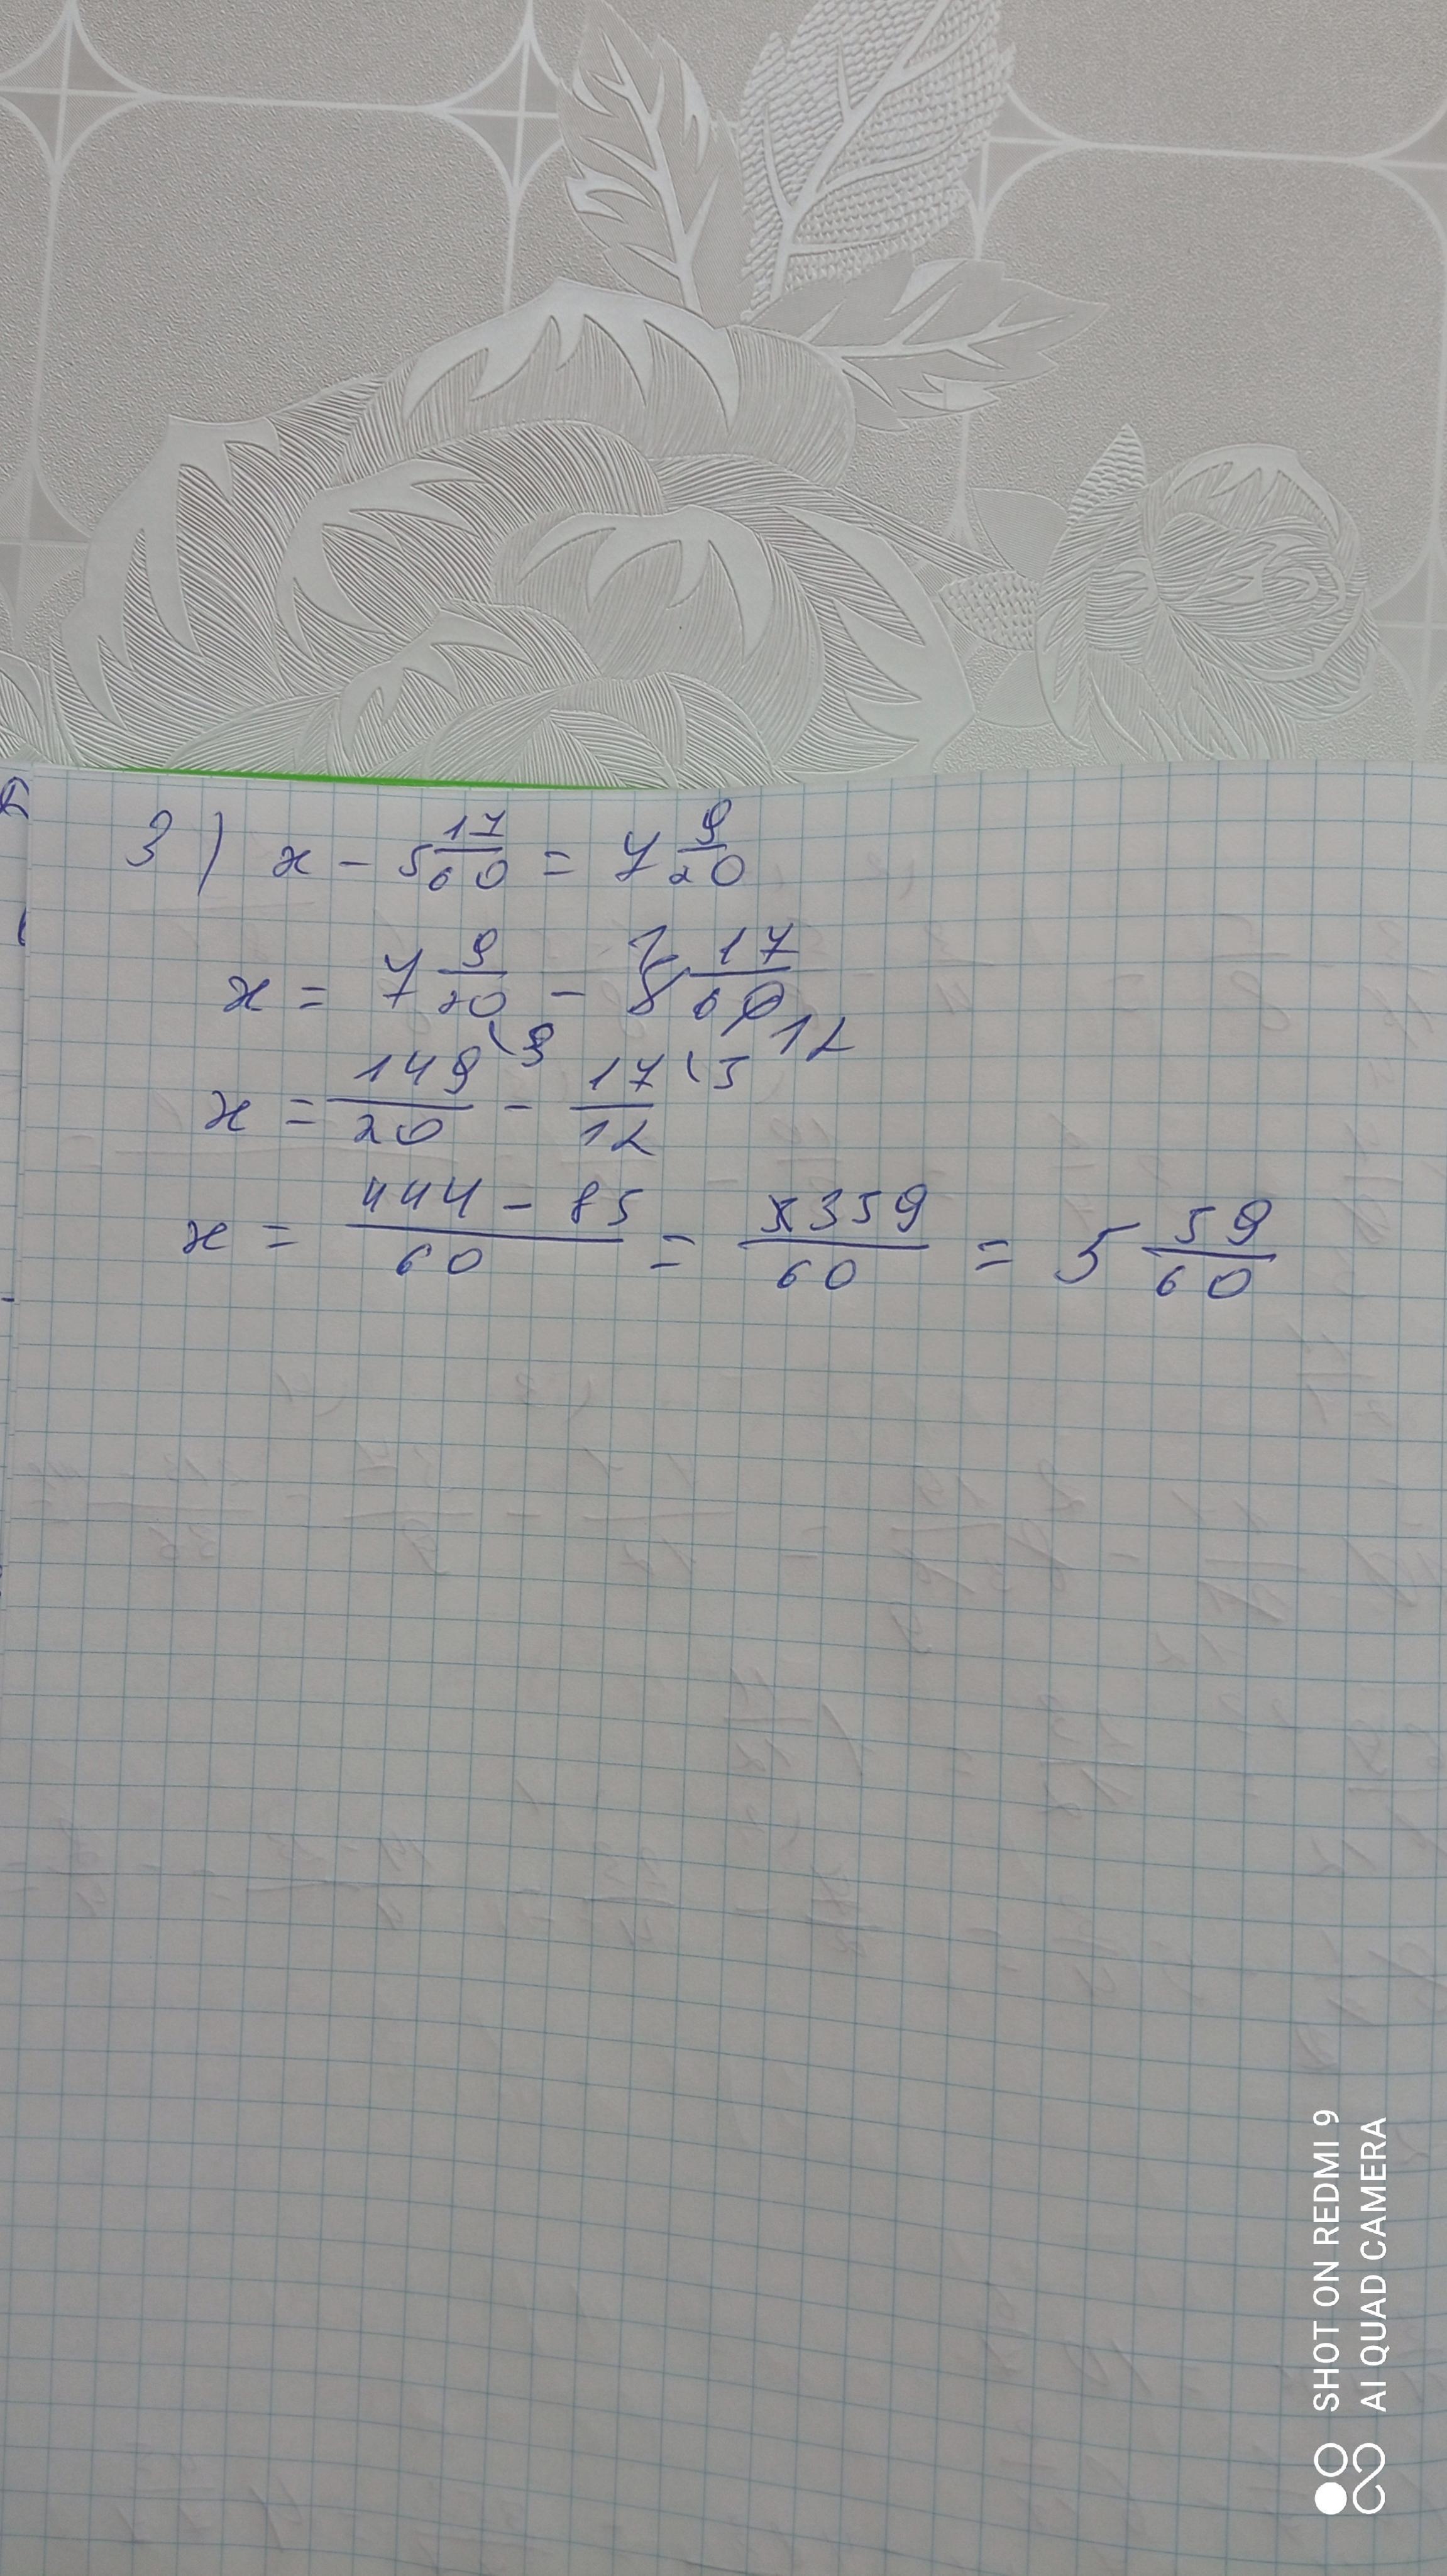 3) x - 5 17/60 = 7 9/20
x = 7 9/20 - 5 17/60 12
x = 149/20 \3 - 17/12 \5
x = 444 - 85/60 = 359/60 = 5 59/60
SHOT ON REDMI 9
AI QUAD CAMERA